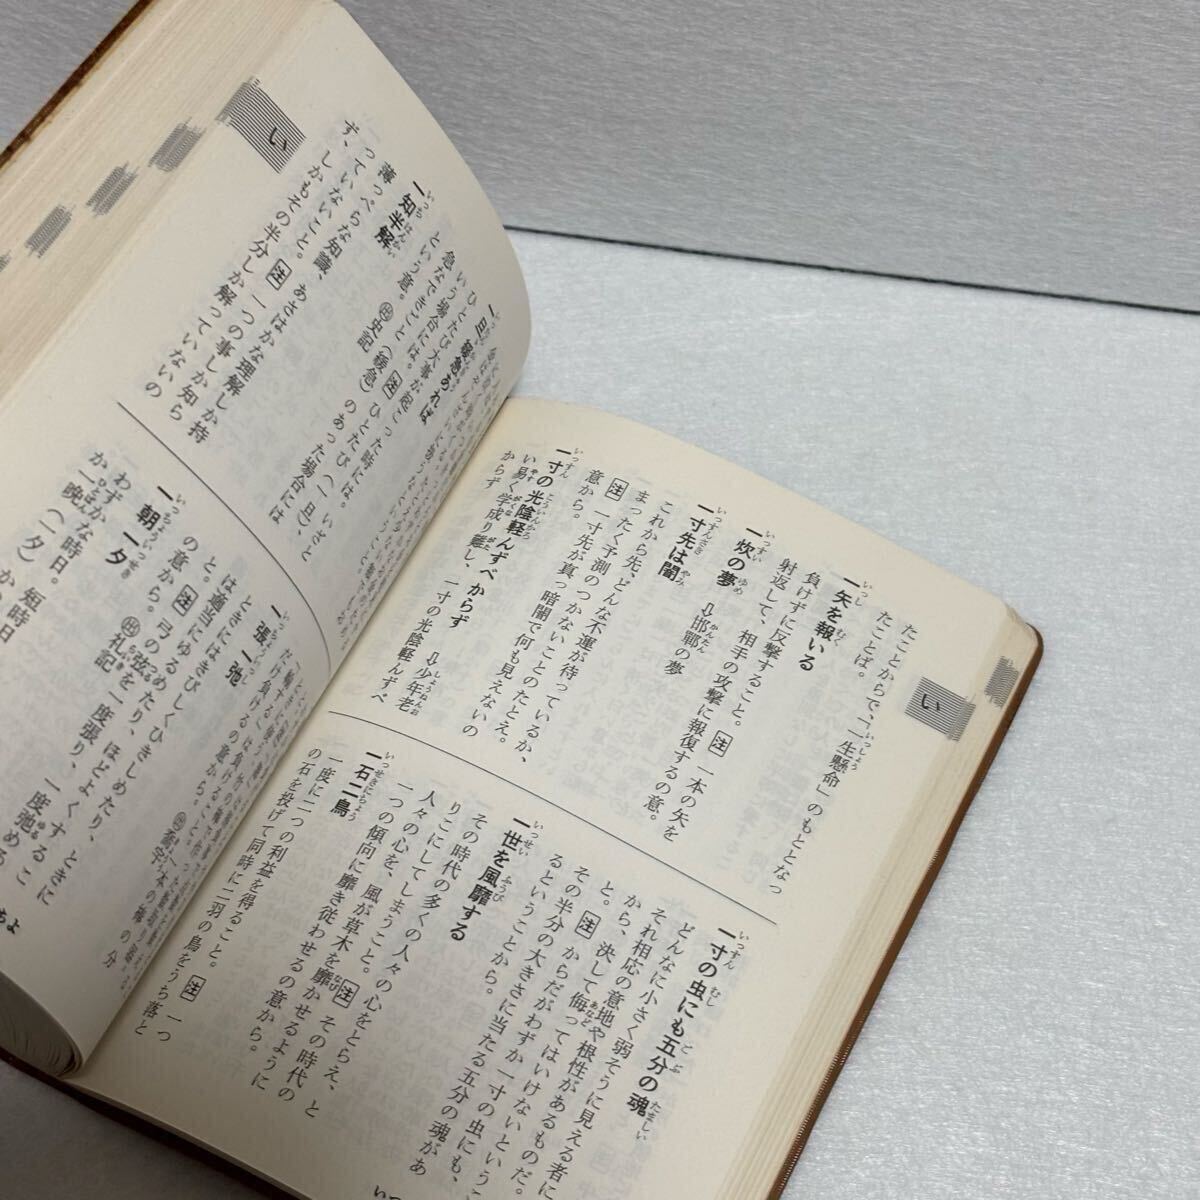 い
たことからで、「一生懸命」のもととなっ
たことば。
一矢を報いる
負けずに反撃すること。注 一本の矢を
射返して、相手の攻撃に報復するの意。
一炊の夢 ⇩邯鄲の夢
一寸先は闇
これから先、どんな不運が待っているか、
まったく予測のつかないことのたとえ。
注 一寸先が真っ暗闇で何も見えないの
意から。
一寸の光陰軽んずべからず ⇩少年老
い易く学成り難し、一寸の光陰軽んずべ
からず
一寸の虫にも五分の魂
どんなに小さく弱そうに見える者に
それ相応の意地や根性があるものだ。
から、決して侮ってはいけないというこ
と。注 からだがわずか一寸の虫にも、
その半分の大きさに当たる五分の魂があ
るということから。
一世を風靡する
その時代の多くの人々の心をとらえ、と
りこにしてしまうこと。注 その時代の
人々の心を、風が草木を靡かせるように
一つの傾向に靡き従わせるの意から。
一石二鳥
一度に二つの利益を得ること。注 一つ
の石を投げて同時に二羽の鳥をうち落と
い
一旦緩急あれば
いひとたび大事が起こった時には。いざと
いう場合には。注 ひとたび(一旦)、
急なできごと(緩急)のあった場合には
という意。出 史記
一知半解
薄っぺらな知識、あさはかな理解しか持
っていないこと。注 一つの事しか知ら
ず、しかもその半分しか解っていないの
一張一弛
ときにはきびしくひきしめたり、ときに
は適当にゆるめたり、ほどよくするこ
と。注 弓の弦を一度張り、一度弛める
の意から。出 礼記
一朝一夕
わずかな時日。短時日
か一晩(一夕)か
ちよ